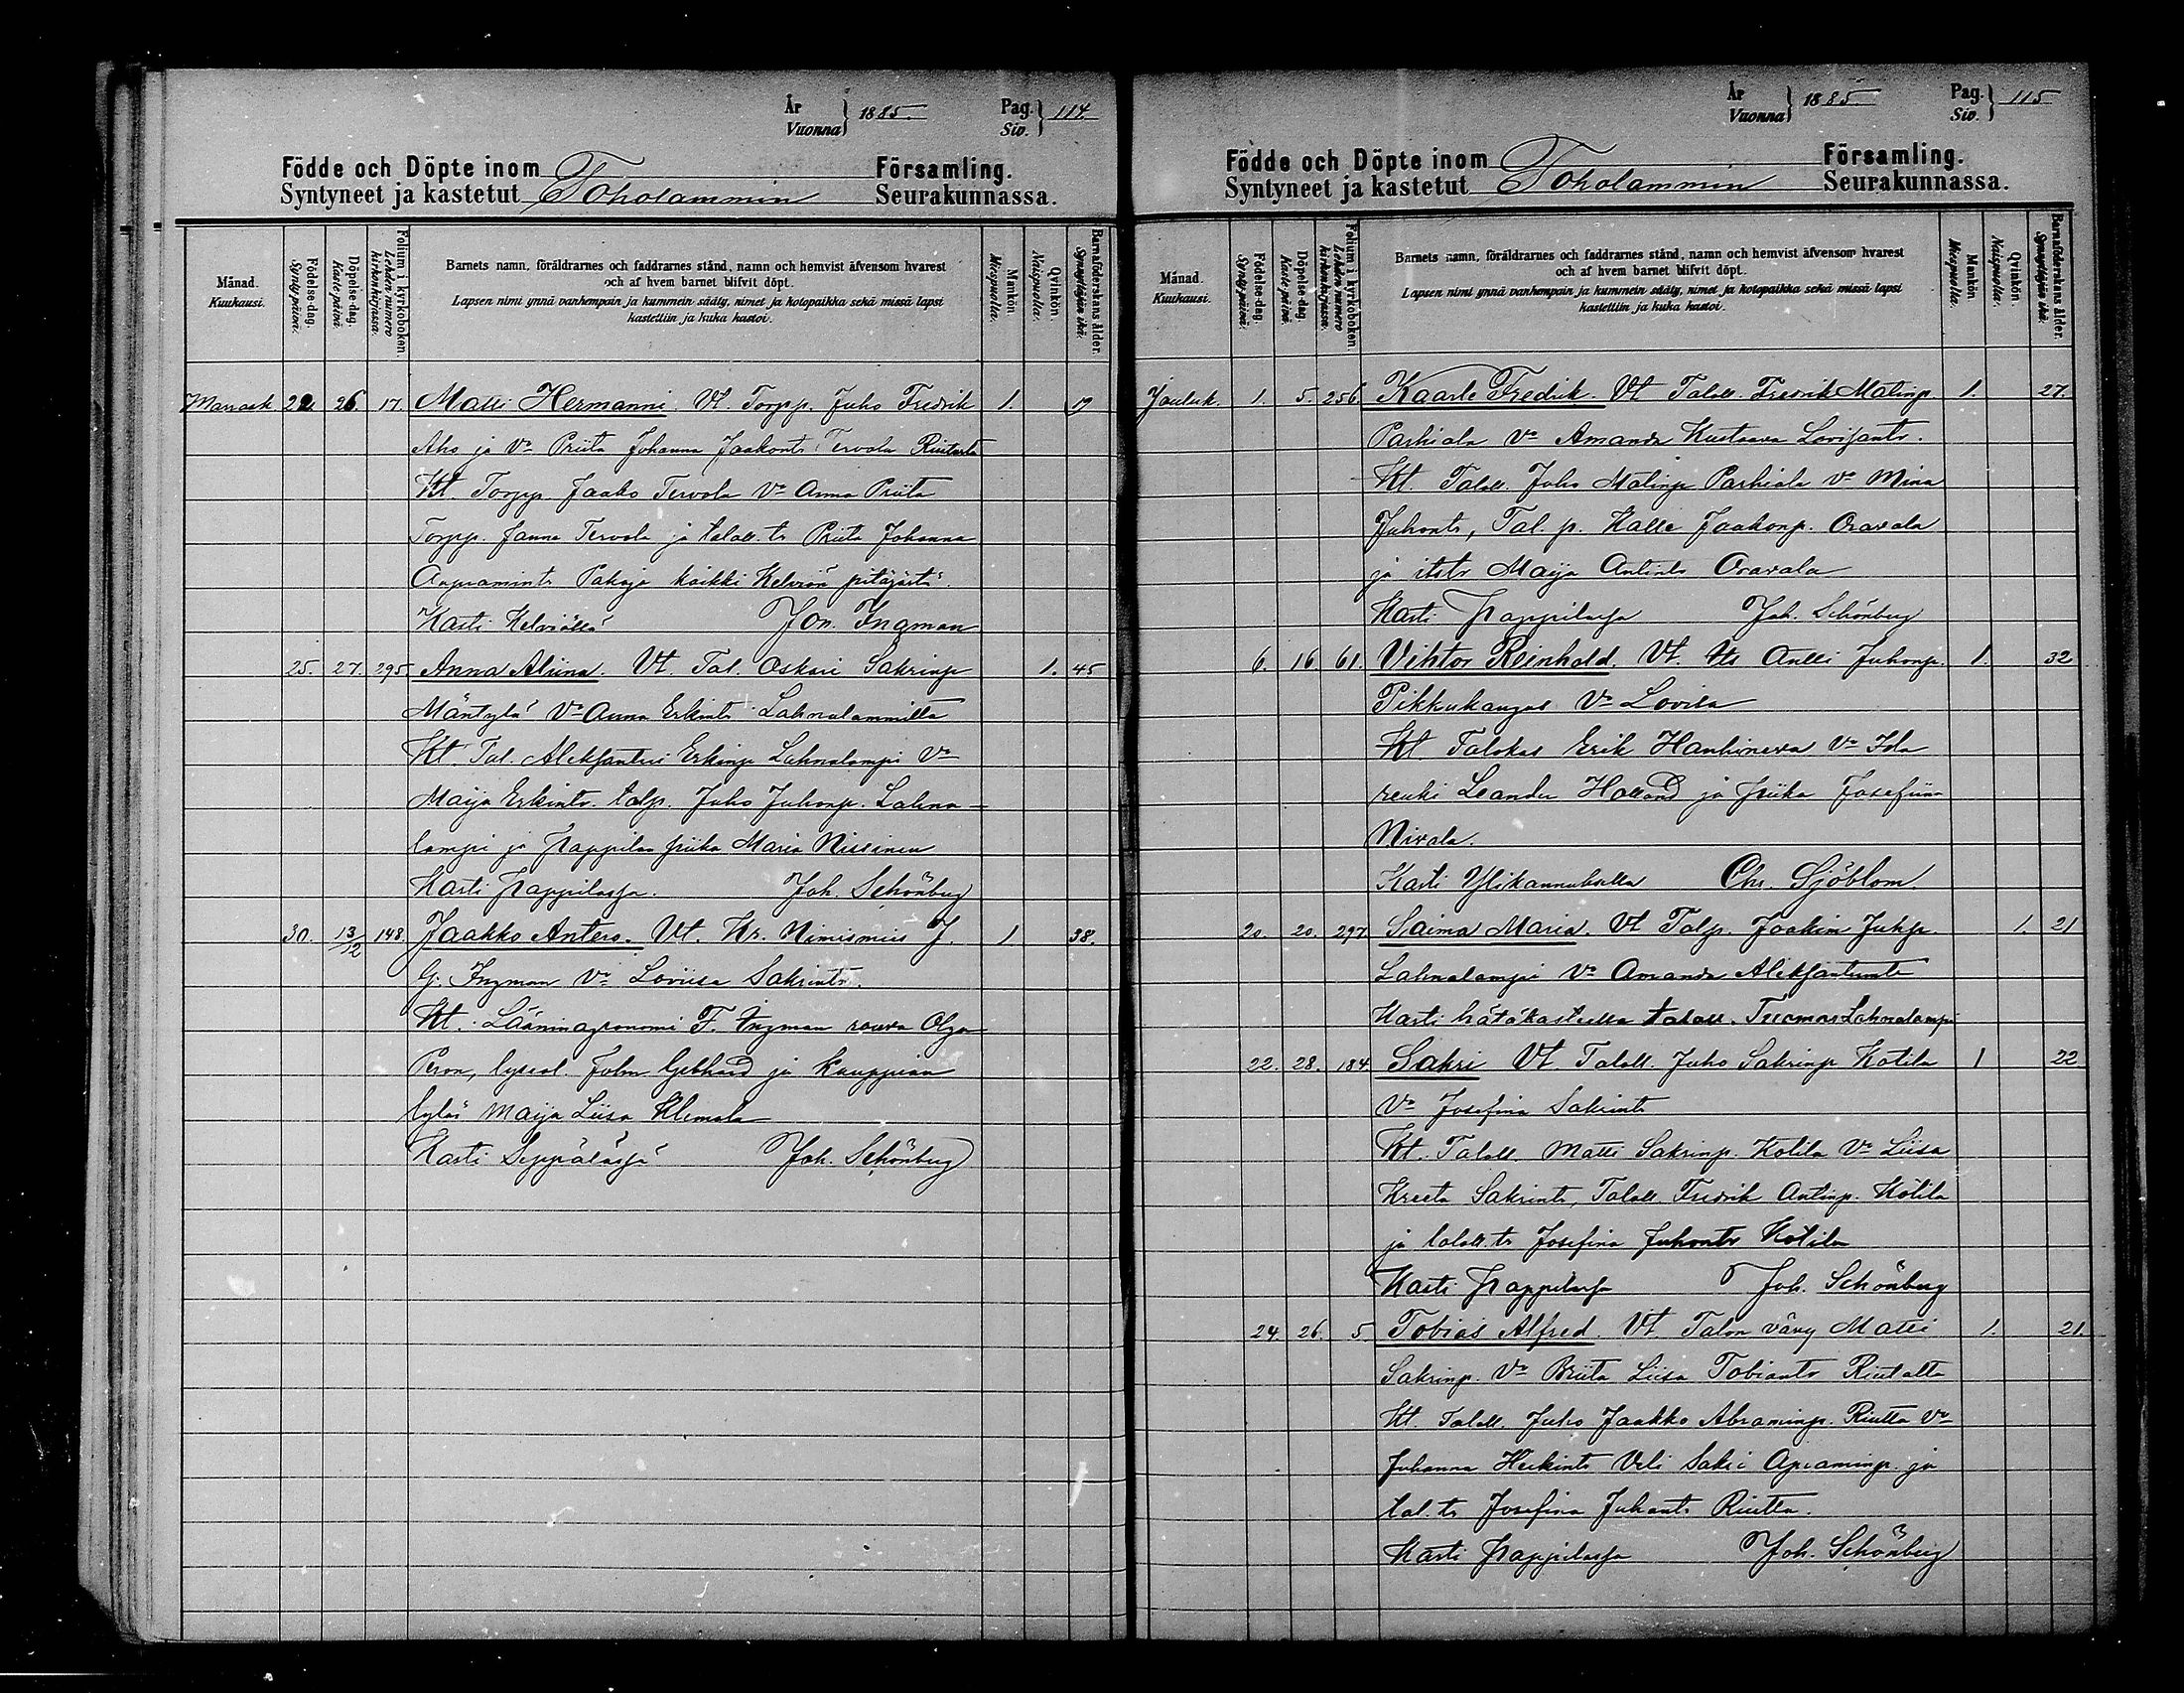 År
Vuonna } 1885. Pag.
Siv. } 114.
Födde och Döpte inom Församling.
Syntyneet ja kastetut Toholammin Seurakunnassa.
Månad.
Kuukausi.
Födelse-dag.
Synty päivä.
Döpelse-dag.
Kaste päivä.
Folium i kyrkoboken.
Lehden numero kirkonkirjassa.
Barnets namn, föräldrarnes och faddrarnes stånd, namn och hemvist äfvensom hvarest
och af hvem barnet blifvit döpt.
Lapsen nimi ynnä vanhempain ja kummein sääty, nimet ja kotopaikka sekä missä lapsi
kastettiin ja kuka kastoi.
Mankön.
Miespuolta.
Qvinkön.
Naispuolta.
Barnaföderskans ålder.
Synnyttäjän ikä.
Marrask 22 26. 17. Matti Hermanni. Vt. Torpp. Juho Fredrik 1.
Aho ja Vo Priita Johanna Jaakonts Tervola Riutasta
Kt. Torpp. Jaako Tervola Vo Anna Priita
Torpp. Janne Tervola ja talall. tr Priita Johanna
Aapramints Pakaja kaikki Kelviän pitäjästä.
Kasti Kelviällä Jon. Ingman
25. 27. 295. Anna Aliina. Vt. Tal. Oskari Sakrinp 1. 45
Mäntylä Vo Anna Erkints Lahnalammilta
Kt. Tal. Aleksanteri Erkinp Lahnalampi Vo
Maija Erkints. talp. Juho Juhonp. Lahna-
lampi ja Pappilan piika Maria Nissinen
Kasti Pappilassa. Joh. Schönberg
30. 13/12 148. Jaakko Antero. Vt. Kr. Nimismies J. 1 38.
G. Ingman Vo Loviisa Sakrints.
Kt. Lääninagronomi F. Ingman rouva Olga
Peron, lyseol. John Gebhard ja kauppian
lylär Maija Liisa Klemola
Kasti Seppälässä Joh. Schönberg
År
Vuonna } 1885 Pag.
Siv. } 115
Födde och Döpte inom Församling.
Syntyneet ja kastetut Toholammin Seurakunnassa.
Månad.
Kuukausi.
Födelse-dag.
Synty päivä.
Döpelse-dag.
Kaste päivä.
Folium i kyrkoboken.
Lehden numero kirkonkirjassa.
Barnets namn, föräldrarnes och faddrarnes stånd, namn och hemvist äfvensom hvarest
och af hvem barnet blifvit döpt.
Lapsen nimi ynnä vanhempain ja kummein sääty, nimet ja kotopaikka sekä missä lapsi
kastettiin ja kuka kastoi.
Mankön.
Miespuolta.
Qvinkön.
Naispuolta.
Barnaföderskans ålder.
Synnyttäjän ikä.
Jouluk. 1. 5. 256. Kaarle Fredrik. Vt Talall. Fredrik Matinp. 1. 27.
Parhiala Vo Amanda Kustaava Lovisants.
Kt. Talall. Juho Matinp Parhiala Vo Mina
Juhonts, Tal. p. Kalle Jaakonp. Oravala
ja itstr Maija Antints Oravala
Kasti Pappilassa Joh. Schönberg
6. 16 61. Vihtor Reinhold. Vt. Its Antti Juhonp. 1. 32
Pikkukangas Vo Lovisa
Kt. Talokas Erik Hanhineva Vo Ida
renki Leander Holland ja piika Josefiina
Nivala.
Kasti Ylikannuksella Chr. Sjöblom.
20. 20. 297 Saima Maria. Vt Talp. Joakim Juhp. 1. 21
Lahnalampi Vo Amanda Aleksanterints
Kasti hätäkasteella talall. Tuomas Lahnalampi
22. 28. 184 Sakri Vt. Talall. Juho Sakrinp Kotila 1 22.
Vo Josefina Sakrints
Kt. Talall. Matti Sakrinp. Kotila Vo Liisa
Kreeta Sakrints, Talall Fredrik Antinp. Kotila
ja talall. tr Josefina Juhonts Kotila
Kasti Pappilassa Joh. Schönberg
24. 26. 5. Tobias Alfred. Vt Talon vävy Matti 1. 21.
Sakrinp. Vo Briita Liisa Tobiants Riutalta
Kt. Talall. Juho Jaakko Abraminp. Riutta Vo
Johanna Heikints Veli Sakri Apraminp. ja
tal. tr Josefina Juhonts Riutta.
Kasti Pappilassa Joh. Schönberg